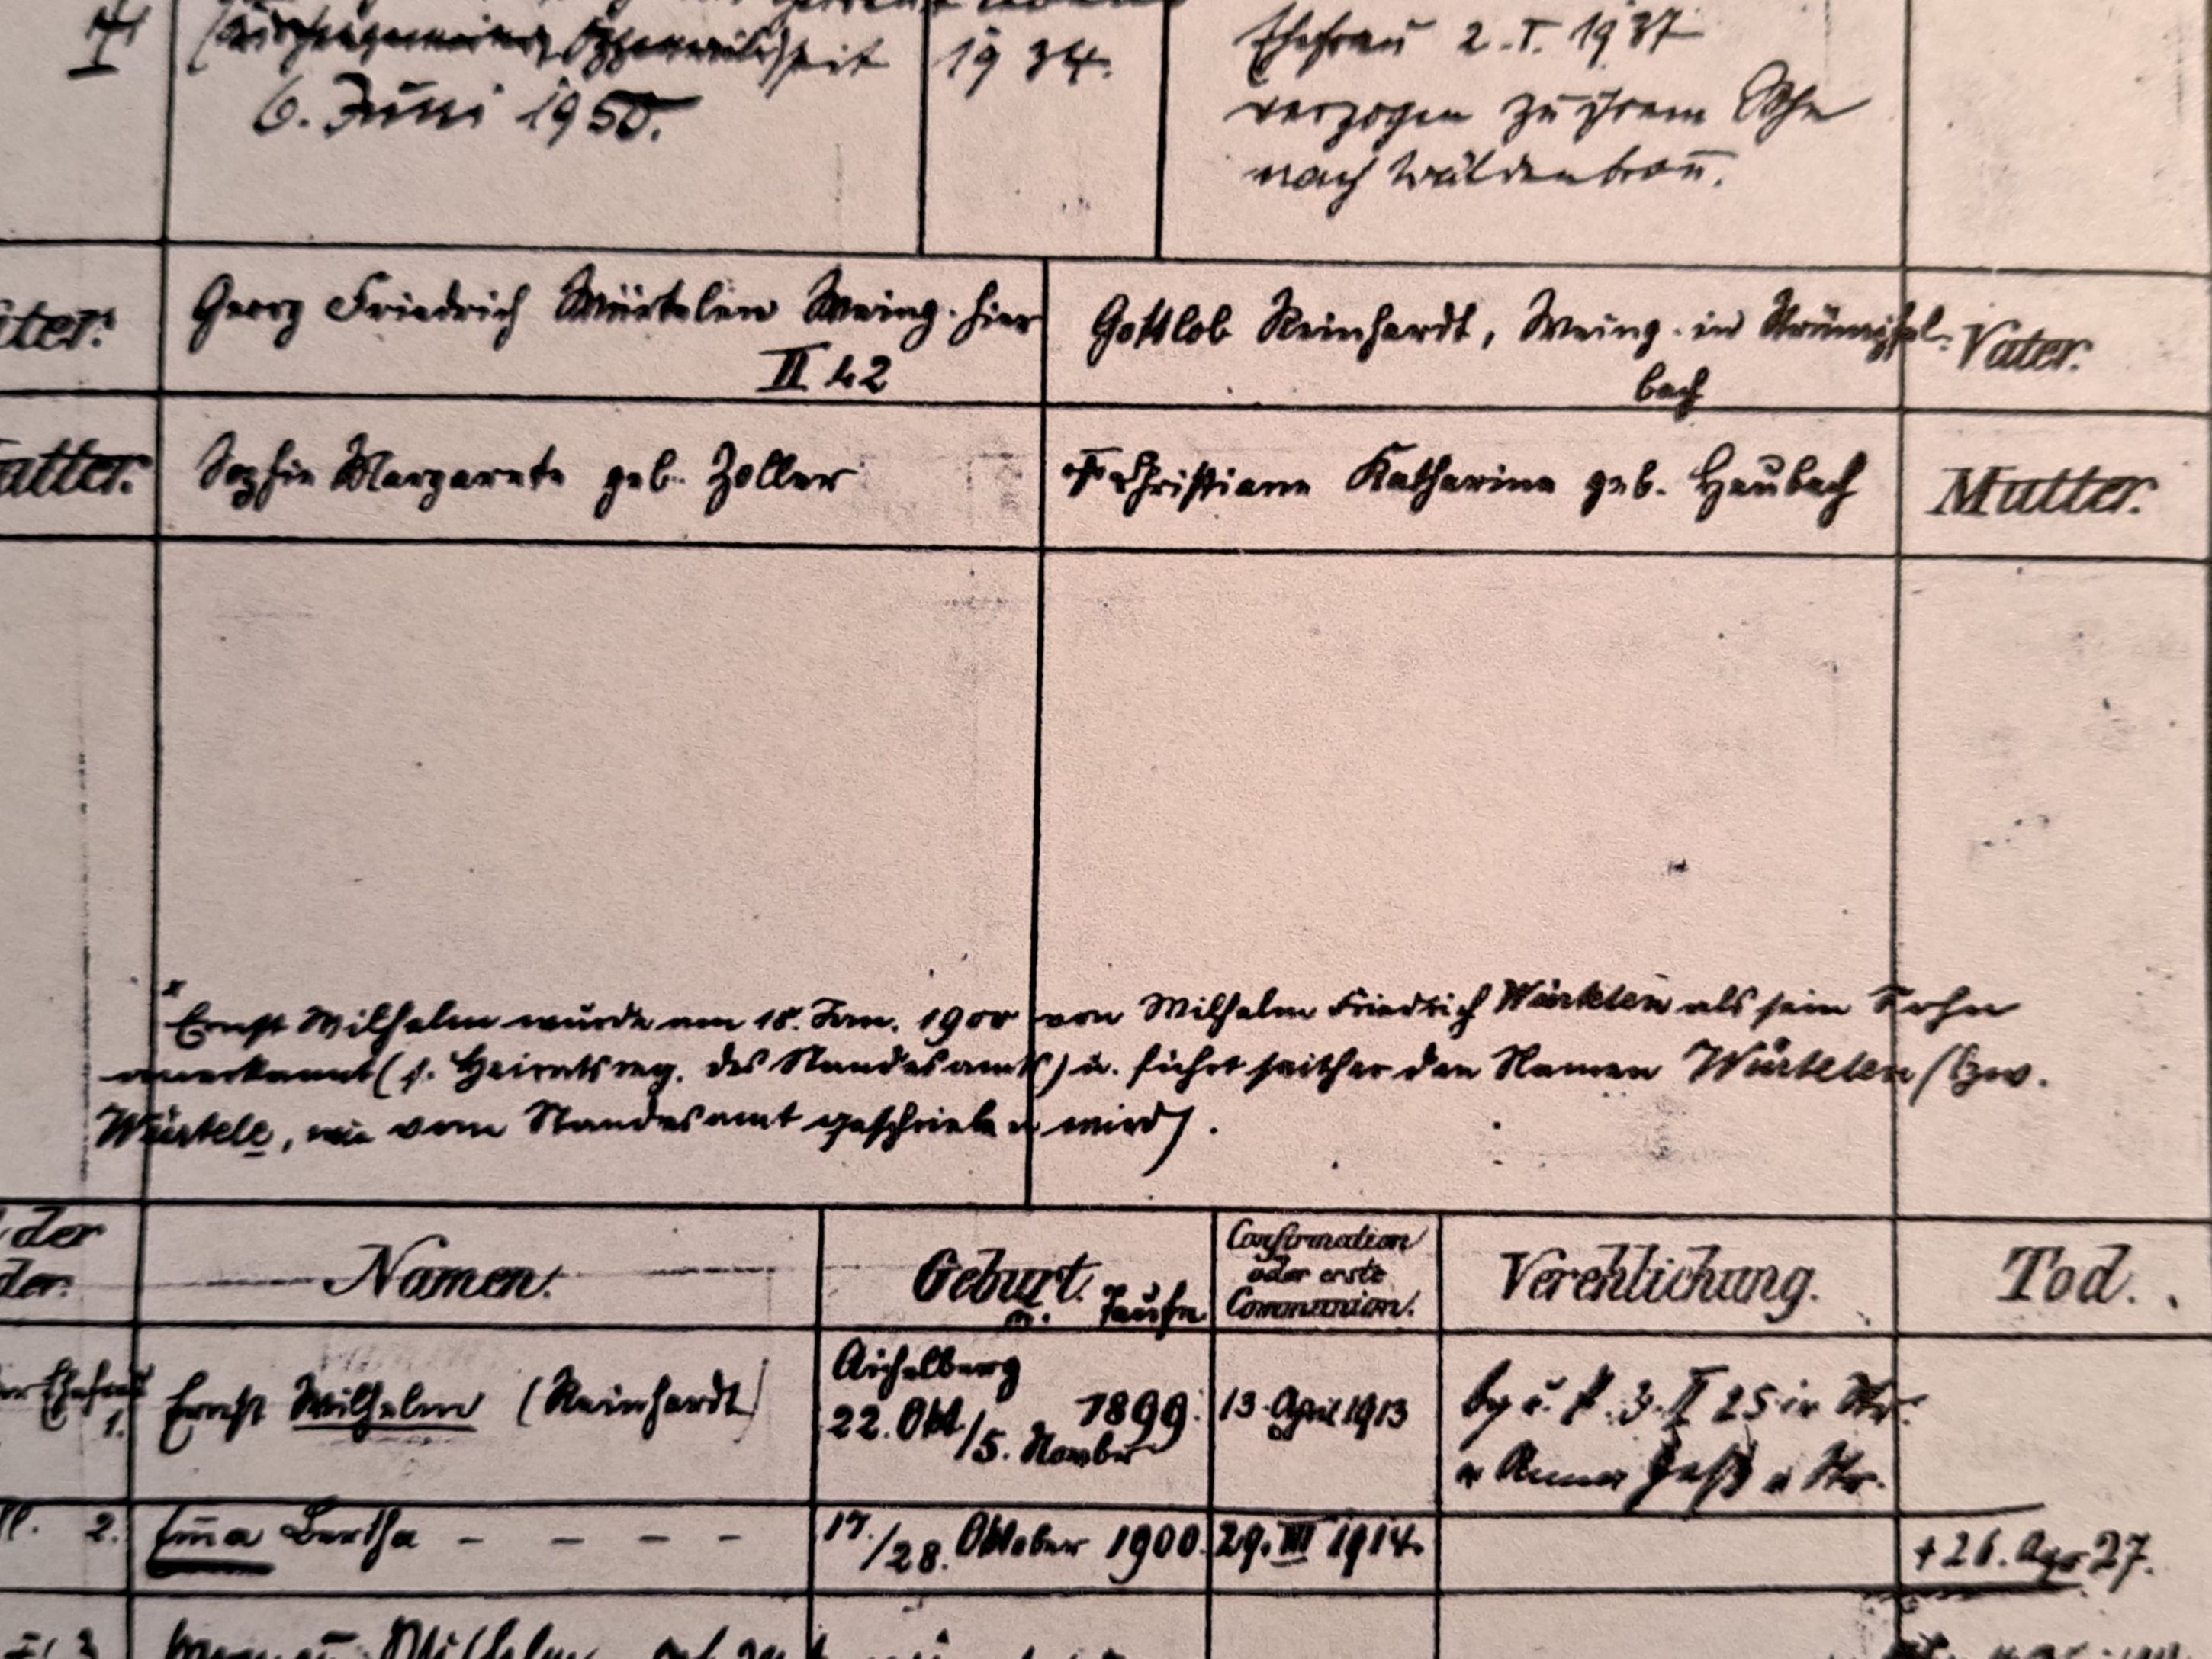 Ehefrau 2. I. 1937
1934.
6. Juni 1950.
verzogen zu ihrem Sohn
nach Waldenbronn.
Georg Friedrich Würtelen Weing. hier
II 42
Gottlob Reinhardt, Weing. in Strümpfel-
bach
Vater.
Sophie Margarete geb. Zoller
Christiane Katharine geb. Heubach
Mutter.
x Ernst Wilhelm wurde am 18. Jan. 1900 von Wilhelm Friedrich Würtelen als sein Sohn
anerkannt (s. Heiratsreg. des Standesamts) u. führt seither den Namen Würtelen (bzw.
Würtele, wie vom Standesamt geschrieben wird).
der
Namen.
Geburt
u. Taufe
Confirmation
oder erste
Communion.
Verehlichung.
Tod.
1.
Ernst Wilhelm (Reinhardt)
Aichelberg
22. Okt./5. November 1899.
13. April 1913
3. II 25 in Str.
Anna
2.
Em̄a Bertha - - - -
17./28. Oktober 1900.
29. III 1914.
+ 26. Apr. 27.
3
Wilhelm